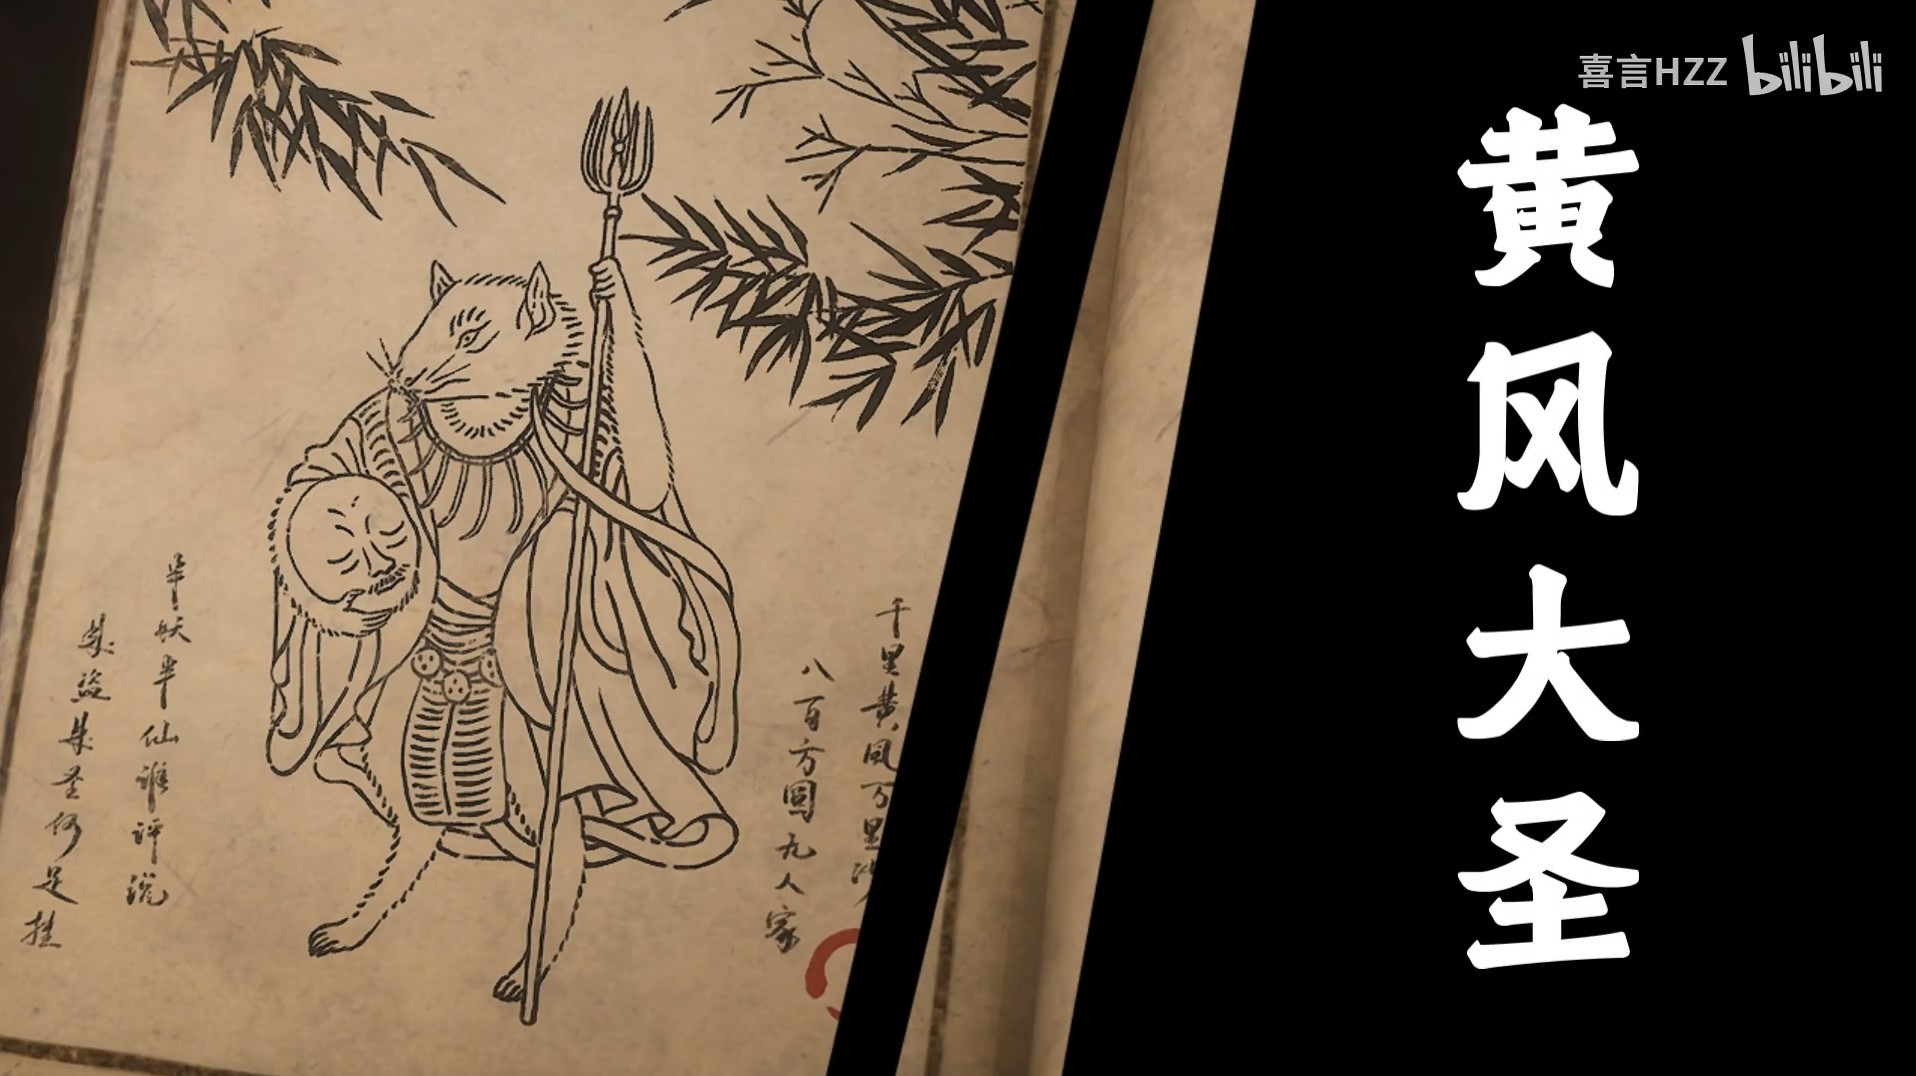 喜言HZZ bilibili
黄风大圣
千里黄风万里沙
八百方圆九人家
半妖半仙谁评说
是盗是圣何足挂